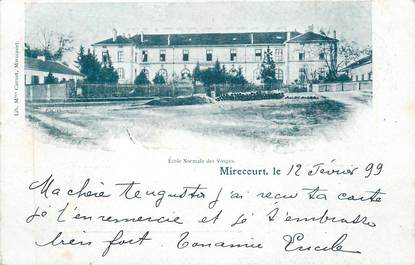 Lib. Mme Carnet, Mirecourt.
École Normale des Vosges.
Mirecourt, le 12 février 99
Ma chère j'ai reçu ta carte
je t'en remercie et je t'embrasse
bien fort. Ton amie Lucile